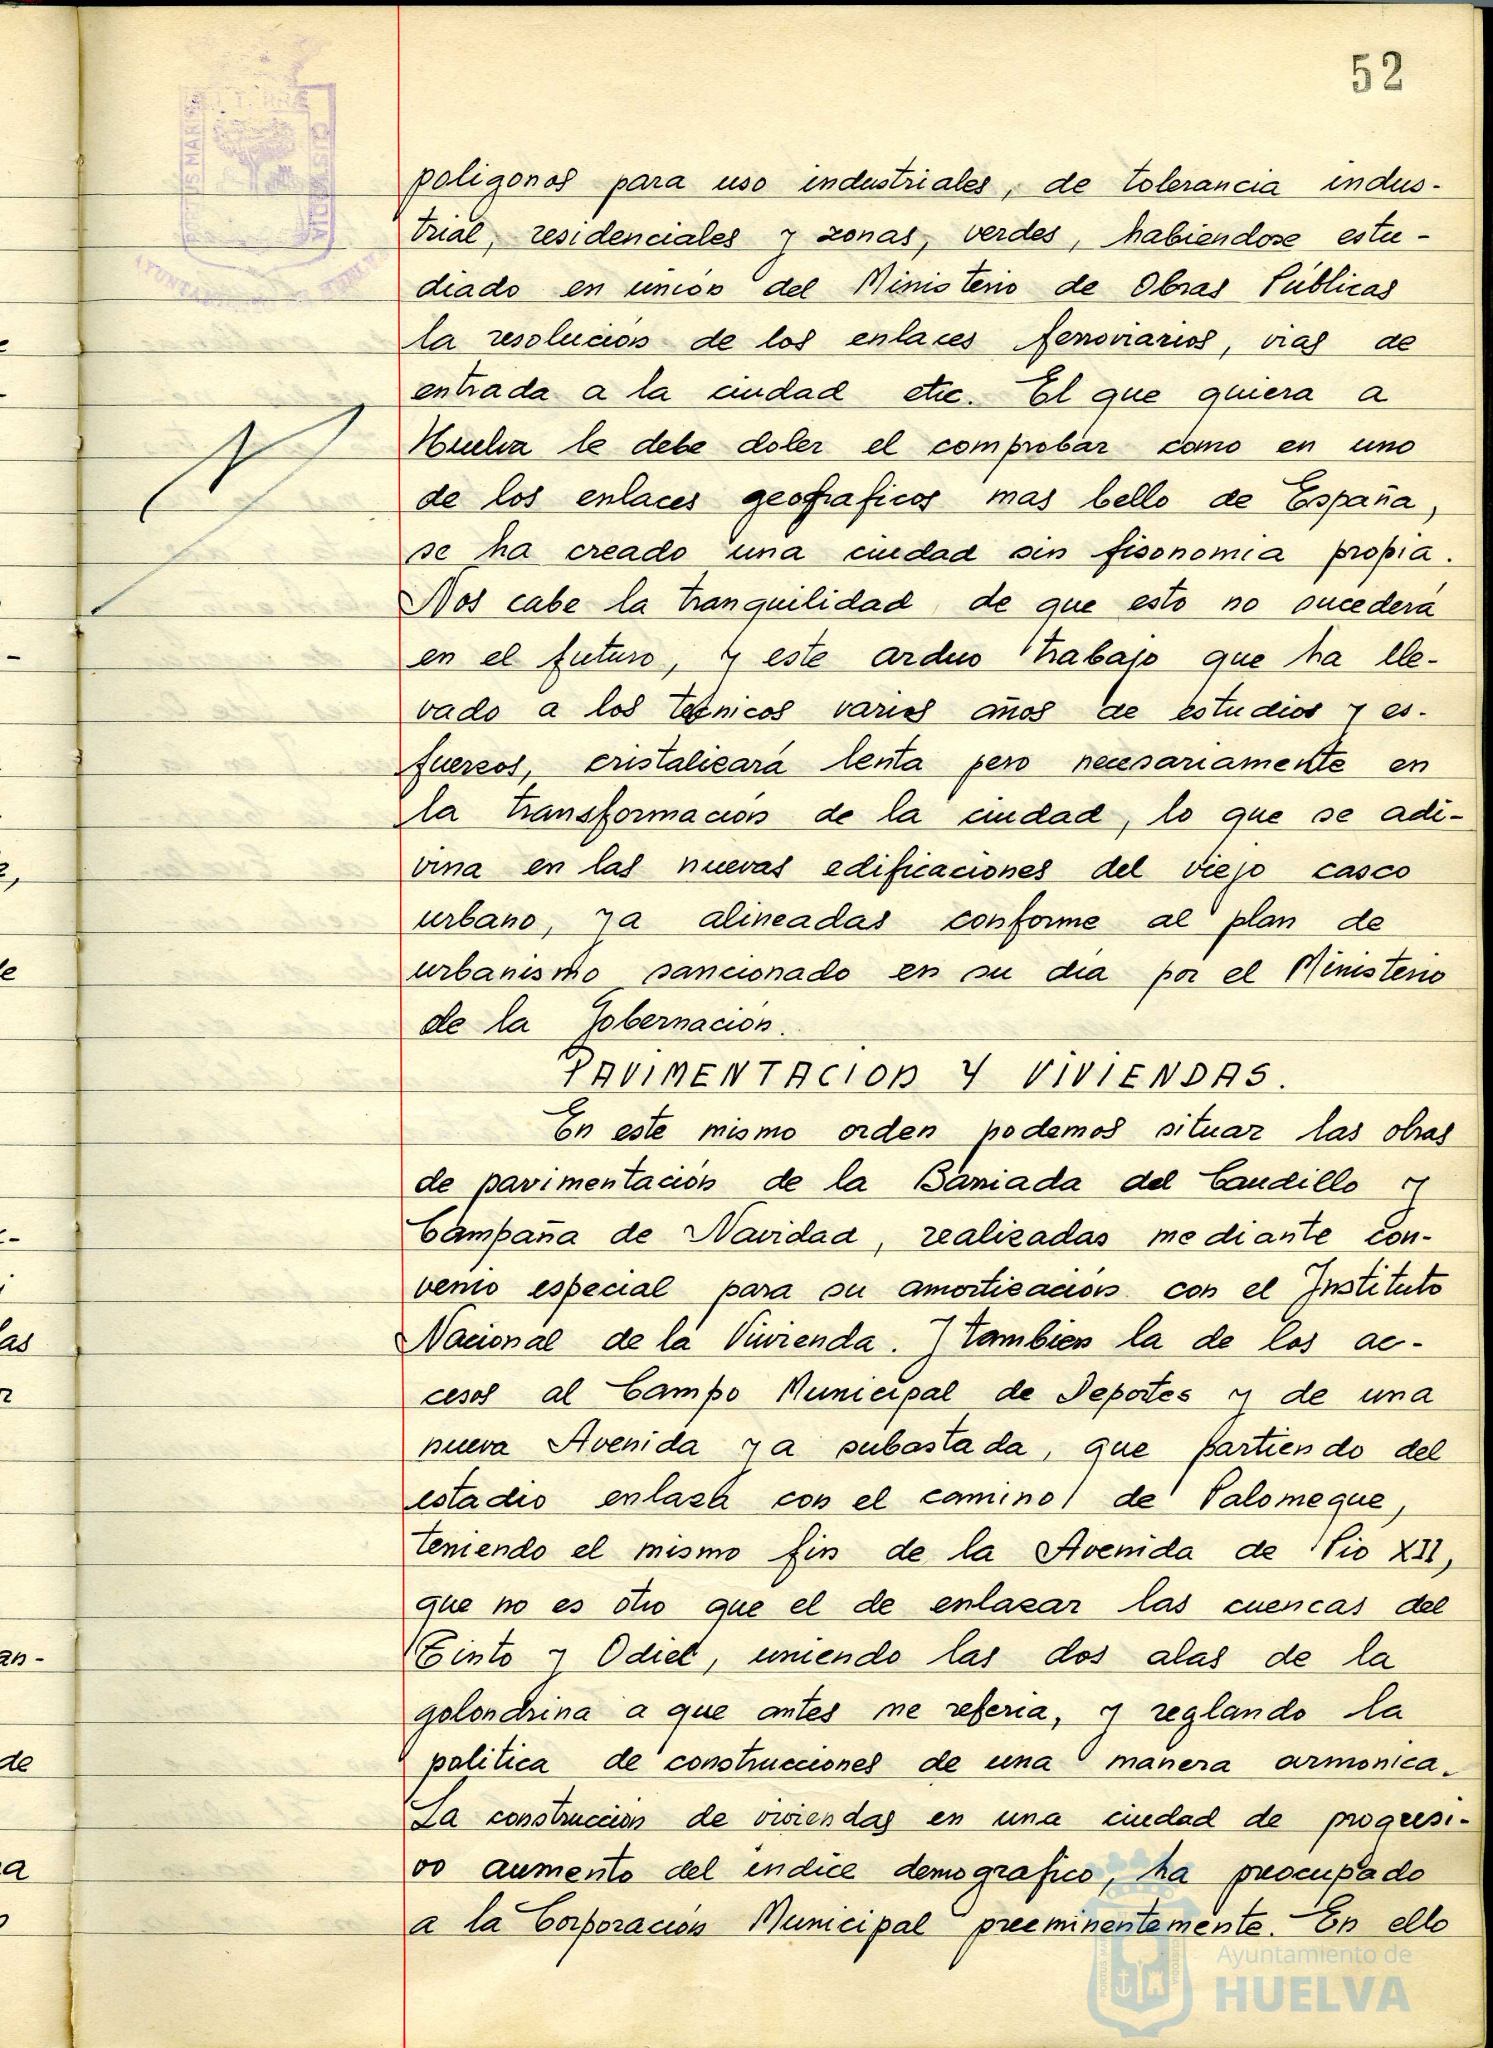 52
poligonos para uso industriales, de tolerancia indus-
trial, residenciales y zonas, verdes, habiendose estu-
diado en unión del Ministerio de Obras Públicas
la resolución de los enlaces ferroviarios, vias de
entrada a la ciudad etc. El que quiera a
Huelva le debe doler el comprobar como en uno
de los enlaces geograficos mas bello de España,
se ha creado una ciudad sin fisonomia propia.
Nos cabe la tranquilidad de que esto no sucederá
en el futuro, y este arduo trabajo que ha lle-
vado a los tecnicos varios años de estudios y es-
fuerzos, cristalizará lenta pero necesariamente en
la transformación de la ciudad, lo que se adi-
vina en las nuevas edificaciones del viejo casco
urbano, ya alineadas conforme al plan de
urbanismo sancionado en su dia por el Ministerio
de la Gobernación.
PAVIMENTACION Y VIVIENDAS.
En este mismo orden podemos situar las obras
de pavimentación de la Barriada del Caudillo y
Campaña de Navidad, realizadas mediante con-
venio especial para su amortización con el Instituto
Nacional de la Vivienda. Y tambien la de los ac-
cesos al Campo Municipal de Deportes y de una
nueva Avenida ya subastada, que partiendo del
estadio enlaza con el camino de Palomeque,
teniendo el mismo fin de la Avenida de Pio XII,
que no es otro que el de enlazar las cuencas del
Tinto y Odiel, uniendo las dos alas de la
golondrina a que antes me referia, y reglando la
politica de construcciones de una manera armonica.
La construcción de viviendas en una ciudad de progresi-
vo aumento del indice demografico, ha preocupado
a la Corporación Municipal preeminentemente. En ello
Ayuntamiento de
HUELVA